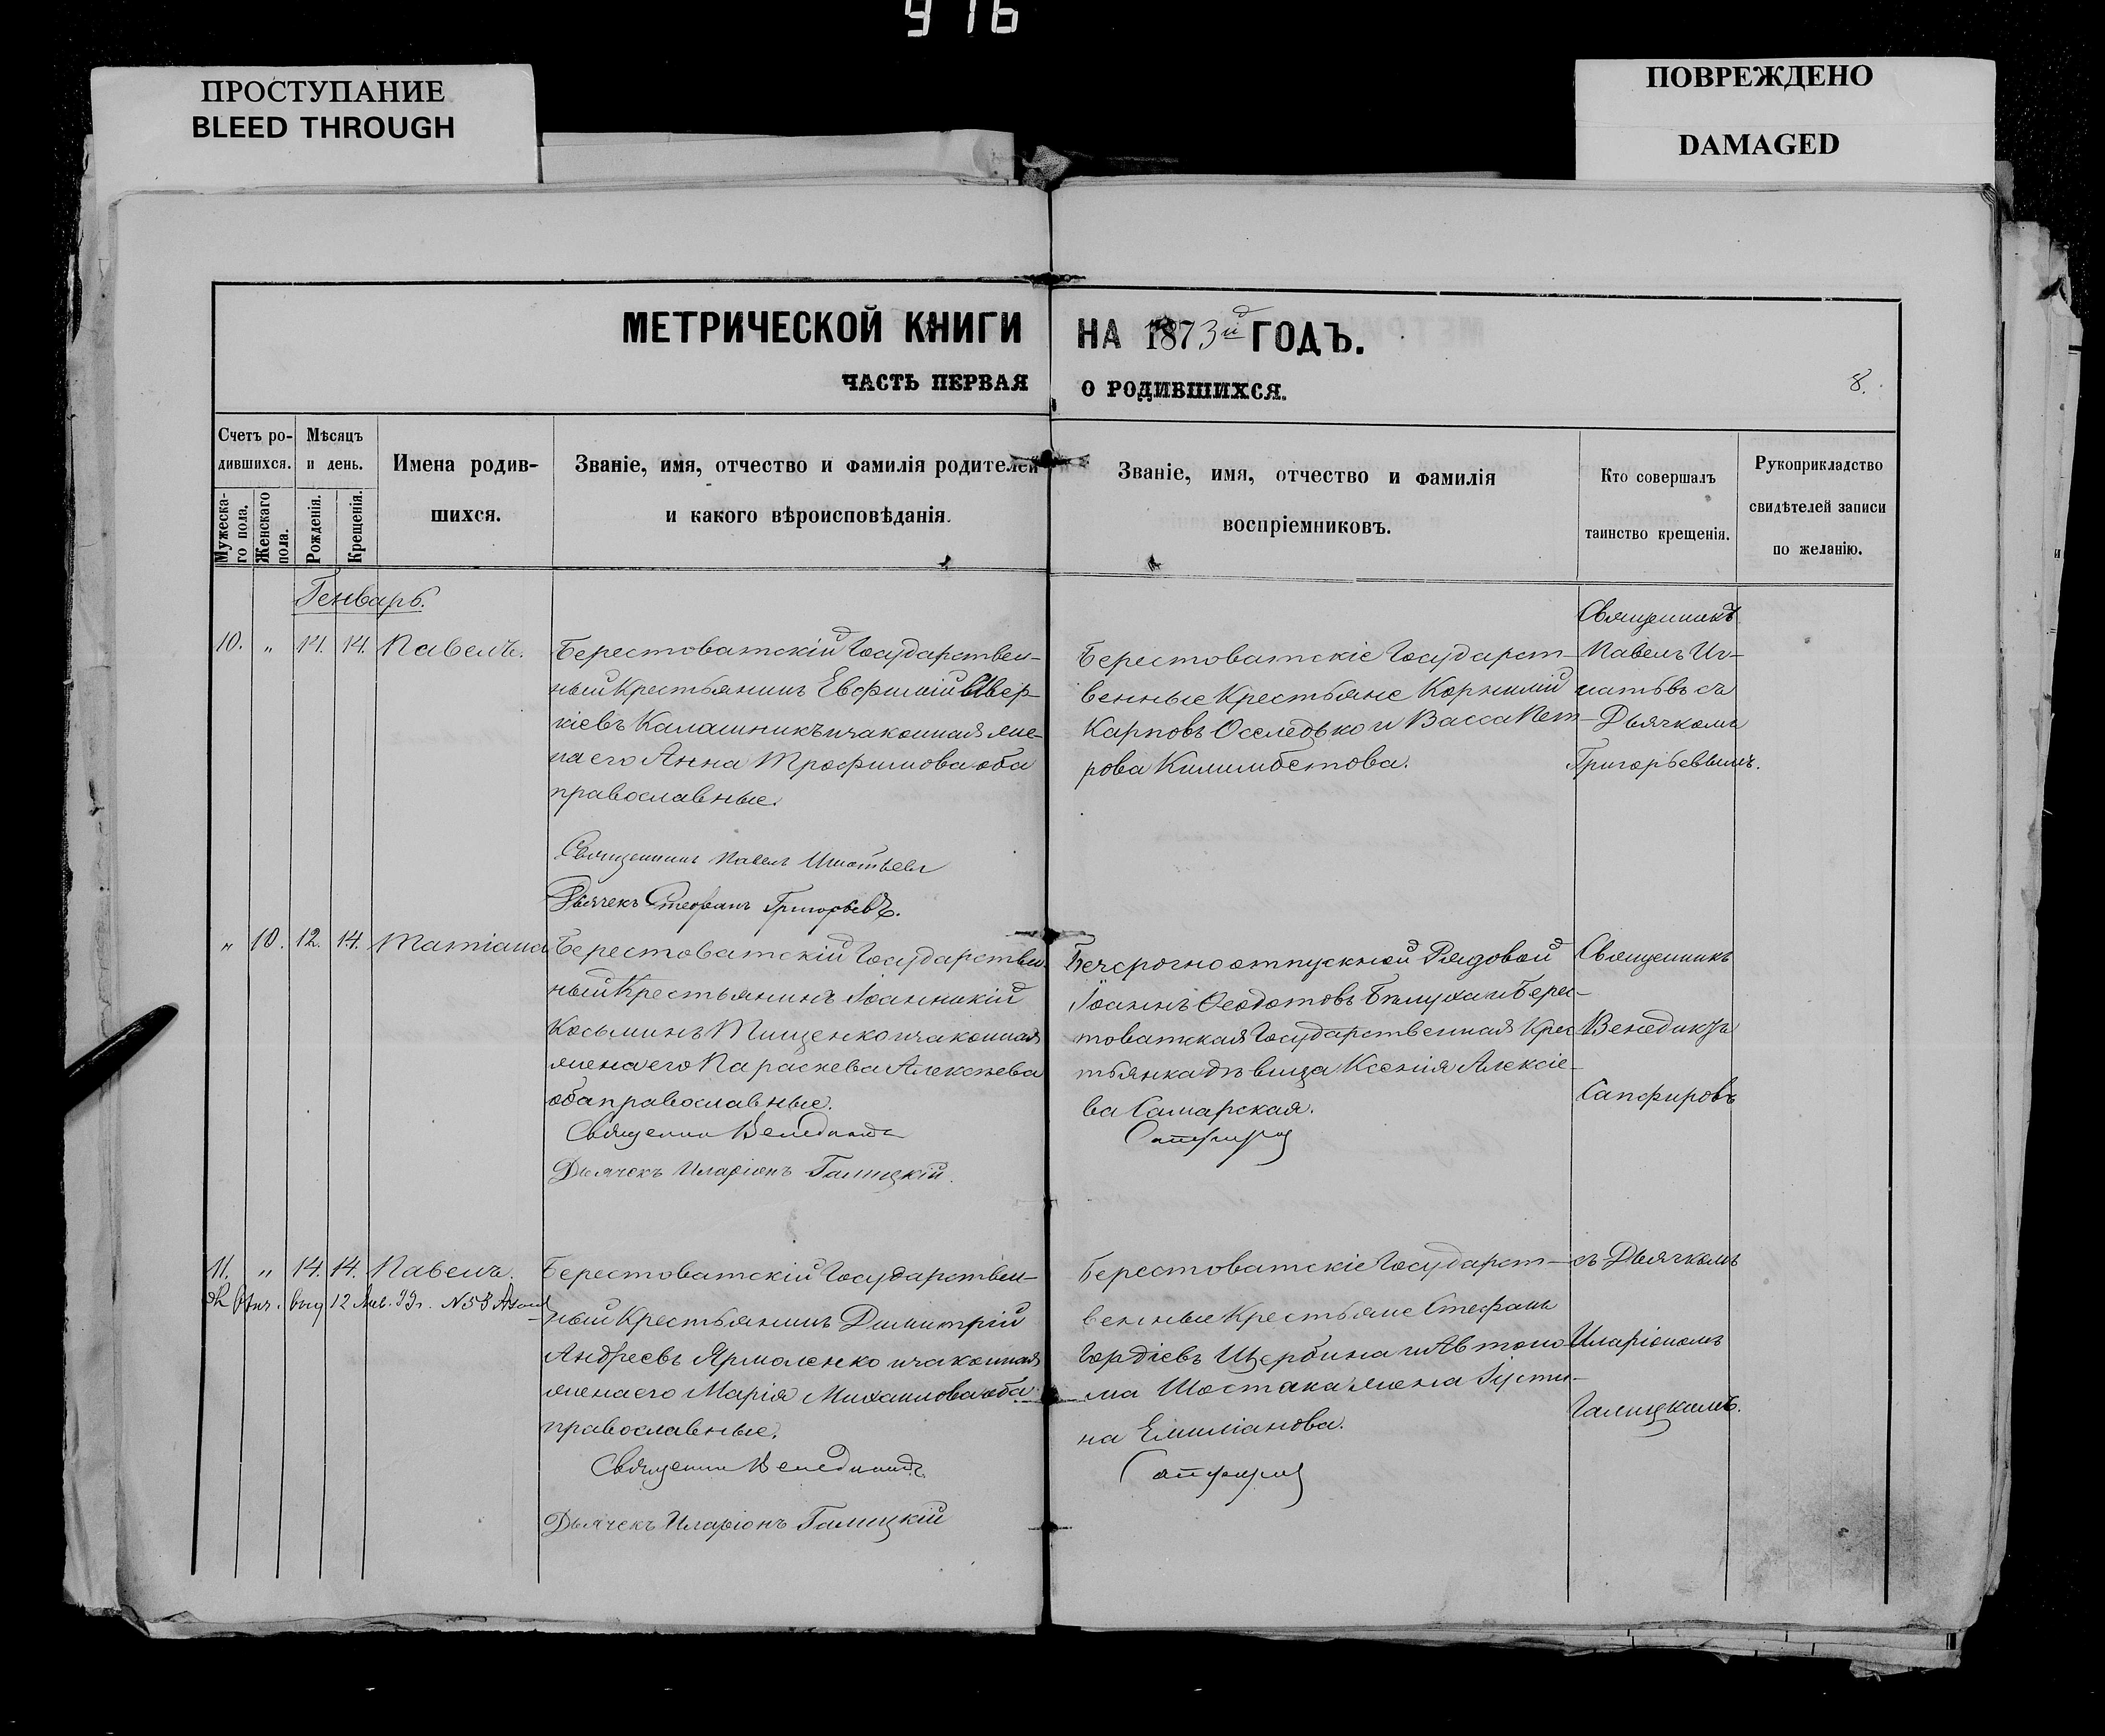 916
ПРОСТУПАНИЕ
BLEED THROUGH
ПОВРЕЖДЕНО
DAMAGED
МЕТРИЧЕСКОЙ КНИГИ НА 1873й ГОДЪ.
ЧАСТЬ ПЕРВАЯ О РОДИВШИХСЯ.
8.
Счетъ ро-
дившихся.
Мужеска-
го пола.
Женскаго
пола.
Мѣсяцъ
и день.
Рожденія.
Крещенія.
Имена родив-
шихся.
Званіе, имя, отчество и фамилія родителей
и какого вѣроисповѣданія.
Званіе, имя, отчество и фамилія
воспріемниковъ.
Кто совершалъ
таинство крещенія.
Рукоприкладство
свидѣтелей записи
по желанію.
Генварь.
10. „ 14. 14. Павелъ.
Берестоватскій Государствен-
ный Крестьянинъ Евфимій Авер-
кіевъ Калашникъ и законная же-
на его Анна Трофимова оба
православные.
Священникъ Павелъ Игнатьевъ
Дьячекъ Стефанъ Григорьевъ.
Берестоватскіе Государст-
венные Крестьяне Корнилій
Карповъ Оселедько и Васса Пет-
рова
Священникъ
Павелъ Иг-
натьевъ съ
Дьячкомъ
Григорьевымъ.
„ 10. 12. 14. Татіана
Берестоватскій Государствен-
ный Крестьянинъ Іоанникій
Косьминъ Тищенко и законная
жена его Параскева Алексѣева
оба православные.
Священникъ Венедиктъ
Дьячекъ Иларіонъ Галицкій.
Безсрочно отпускной Рядовой
Іоаннъ Ѳеодотовъ Бѣлуха и Берес-
товатская Государственная Крес-
тьянка дѣвица Ксенія Алексіе-
ва Самарская.
Сапфировъ
Священникъ
Венедиктъ
Сапфировъ
11. „ 14. 14. Павелъ.
выд 12 Янв. N 53
Берестоватскій Государствен-
ный Крестьянинъ Димитрій
Андреевъ Ярмоленко и законная
жена его Марія Михаилова оба
православные.
Священникъ Венедиктъ
Дьячекъ Иларіонъ Галицкій
Берестоватскіе Государст-
венные Крестьяне Стефанъ
Гордіевъ Щербина и Автоно-
ма Шостака жена Іусти-
на Емиліанова.
Сапфировъ
съ Дьячкомъ
Иларіономъ
Галицкимъ.